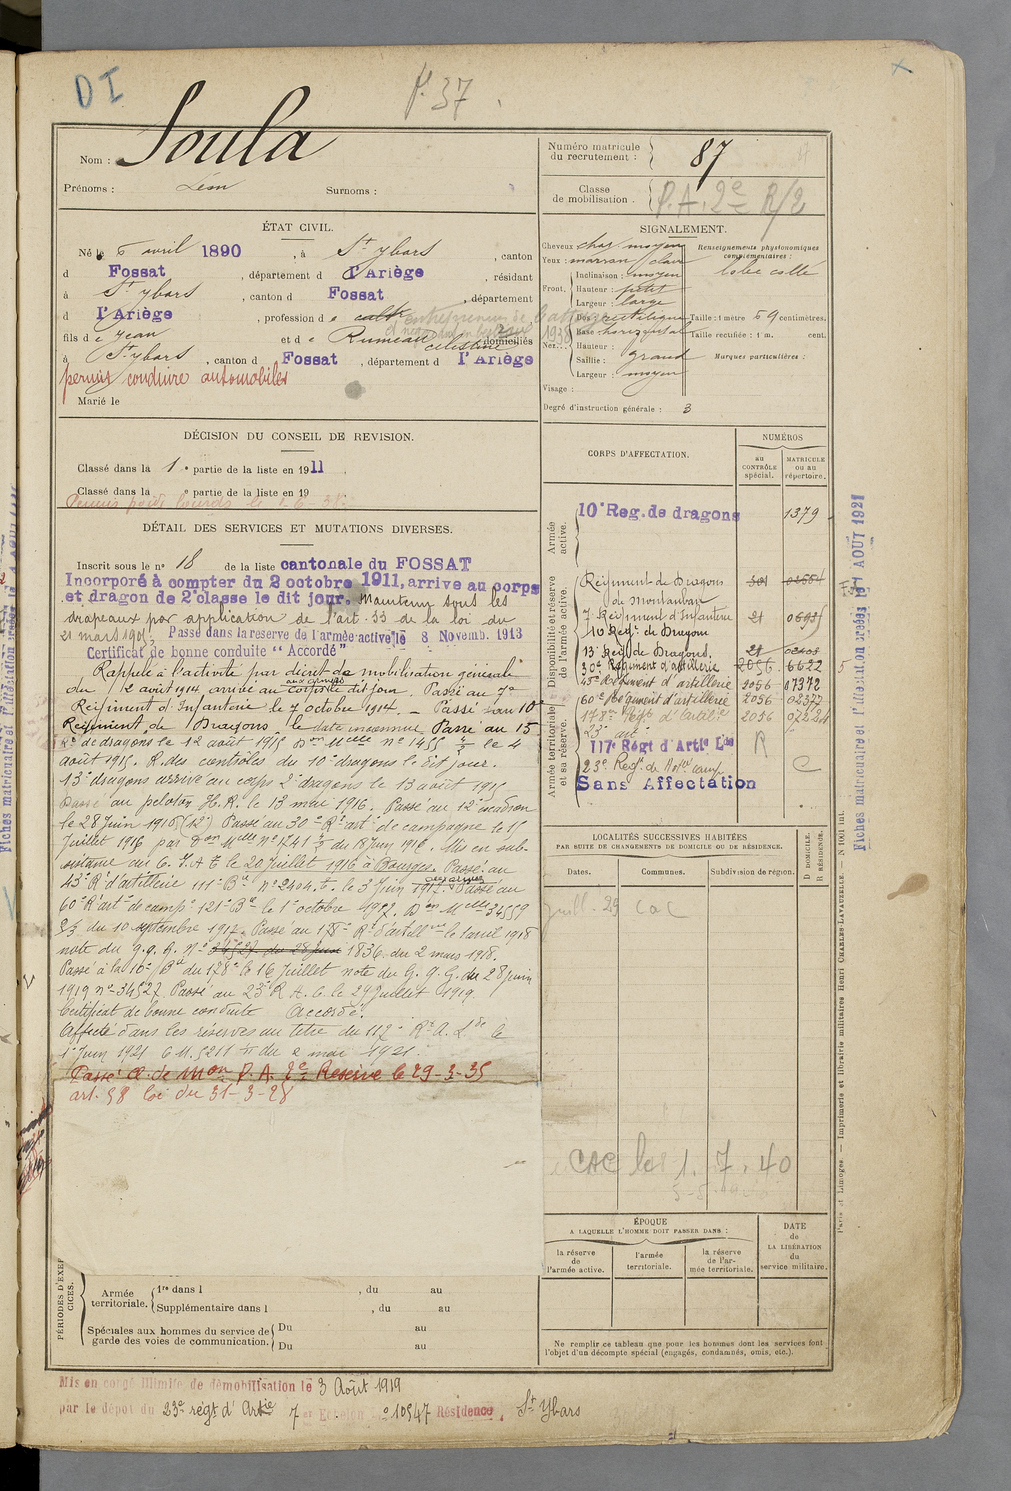 DI
P. 37
Nom : Soula
Prénoms : Léon Surnoms :
Numéro matricule du recrutement : 87
Classe de mobilisation. P.A. 2e R/2
ÉTAT CIVIL.
Né le 6 avril 1890, à St Ybars, canton
d Fossat, département d l'Ariège, résidant
à St Ybars, canton d Fossat, département
d l'Ariège, profession de cultr entrepreneur de
fils de Jean et de Rumeau Célestine domiciliés
à St Ybars, canton d Fossat, département d l'Ariège
permis conduire automobiles
Marié le
SIGNALEMENT.
Cheveux chat. moyen
Yeux : marron clair
Front. Inclinaison : moyen
Hauteur : petit
Largeur : large
Nez. Dos rectiligne
Base horizontal
Hauteur :
Saillie : grand
Largeur : moyen
Visage :
Renseignements physionomiques complémentaires :
lobe collé
Taille : 1 mètre 69 centimètres.
Taille rectifiée : 1 m. cent.
Marques particulières :
Degré d'instruction générale : 3
DÉCISION DU CONSEIL DE REVISION.
Classé dans la 1e partie de la liste en 1911
Classé dans la e partie de la liste en 19
Permis poids lourds le
DÉTAIL DES SERVICES ET MUTATIONS DIVERSES.
Inscrit sous le no 18 de la liste cantonale du FOSSAT
Incorporé à compter du 2 octobre 1911, arrive au corps
et dragon de 2e classe le dit jour. Maintenu sous les
drapeaux par application de l'art. 33 de la loi du
21 mars 1905. Passé dans la reserve de l'armée active le 8 Novemb. 1913
Certificat de bonne conduite "Accordé"
Rappelé à l'activité par décret de mobilisation générale
du 2 août 1914, arrivé au corps le dit jour. Passé au 7e
Régiment d'Infanterie le 7 octobre 1914. - Passé au 10e
Régiment de Dragons, le date inconnue. Passé au 13
Rt de dragons le 12 août 1915 Don Melle no 1455 le 4
août 1915. R. des contrôles du 10e dragons le dit jour.
13e dragons arrivé au corps 2e dragons le 13 août 1915
Passé au peloton H.R. le 13 mai 1916. Passé au 12e escadron
le 28 Juin 1916 (12e) Passé au 30e Rt art. de campagne le 15
Juillet 1916 par Don Melle no 1741 du 18 Juin 1916. Mis en sub-
sistance au le 20 Juillet 1916 à Bourges. Passé au
43e Rt d'artillerie 111e Bie no 2404 le 3 Juin 1917. Passé au
60e Rt art de camp. 121e Bie le 1er octobre 1917. Don Melle 34559
du 10 septembre 1917. Passé au 178e Rt d'artill le 1 avril 1918
note du g. q. G. no 34527 du 28 Juin 1836 du 2 mars 1918.
Passé à la 10e Bie du 178e le 16 Juillet note du G. q. G. du 28 Juin
1919 no 34527. Passé au 23e R A. C le 29 Juillet 1919
Certificat de bonne conduite Accordé.
Affecté dans les réserves au titre du 117e Rt A. Lde le
1er Juin 1921 C M. 5211 du 2 mai 1921.
Passé Cl de Mon P. A. 2e Reserve le 29-3-35
art. 58 loi du 31-3-28
CORPS D'AFFECTATION.
NUMÉROS
au CONTRÔLE spécial.
MATRICULE ou au répertoire.
Armée active.
10e Reg. de dragons 1379
Disponibilité et réserve de l'armée active.
Régiment de Dragons de Montauban
7e Régiment d'Infanterie 21
10 Regt de Dragon
13e Reg. de Dragons. 21
30e Régiment d'artillerie 2056 6622
43e Régiment d'artillerie 2056 07372
60e Régiment d'artillerie 2056 02377
178me Regt d'artillie 2056
Armée territoriale et sa réserve.
117e Régt d'Artie Lde R
23e Regt de camp C
Sans Affectation
LOCALITÉS SUCCESSIVES HABITÉES
PAR SUITE DE CHANGEMENTS DE DOMICILE OU DE RÉSIDENCE.
Dates. Communes. Subdivision de région. D DOMICILE. R RÉSIDENCE.
Juill. 29 CAC
CAC le 1. 7. 40
ÉPOQUE
A LAQUELLE L'HOMME DOIT PASSER DANS :
la réserve de l'armée active.
l'armée territoriale.
la réserve de l'armée territoriale.
DATE de LA LIBÉRATION du service militaire.
Ne remplir ce tableau que pour les hommes dont les services font
l'objet d'un décompte spécial (engagés, condamnés, omis, etc.).
PÉRIODES D'EXERCICES.
Armée territoriale. 1re dans l , du au
Supplémentaire dans l , du au
Spéciales aux hommes du service de garde des voies de communication. Du au
Du au
Mis en congé illimité de démobilisation le 3 Août 1919
par le dépot du 23e régt d'Artie 7 er Echelon no 10547 Résidence, St Ybars
Paris et Limoges. — Imprimerie et librairie militaires Henri CHARLES-LAVAUZELLE. — N 1001 int.
Fiches matriculaire et l'affectation créées le 1 AOUT 1921